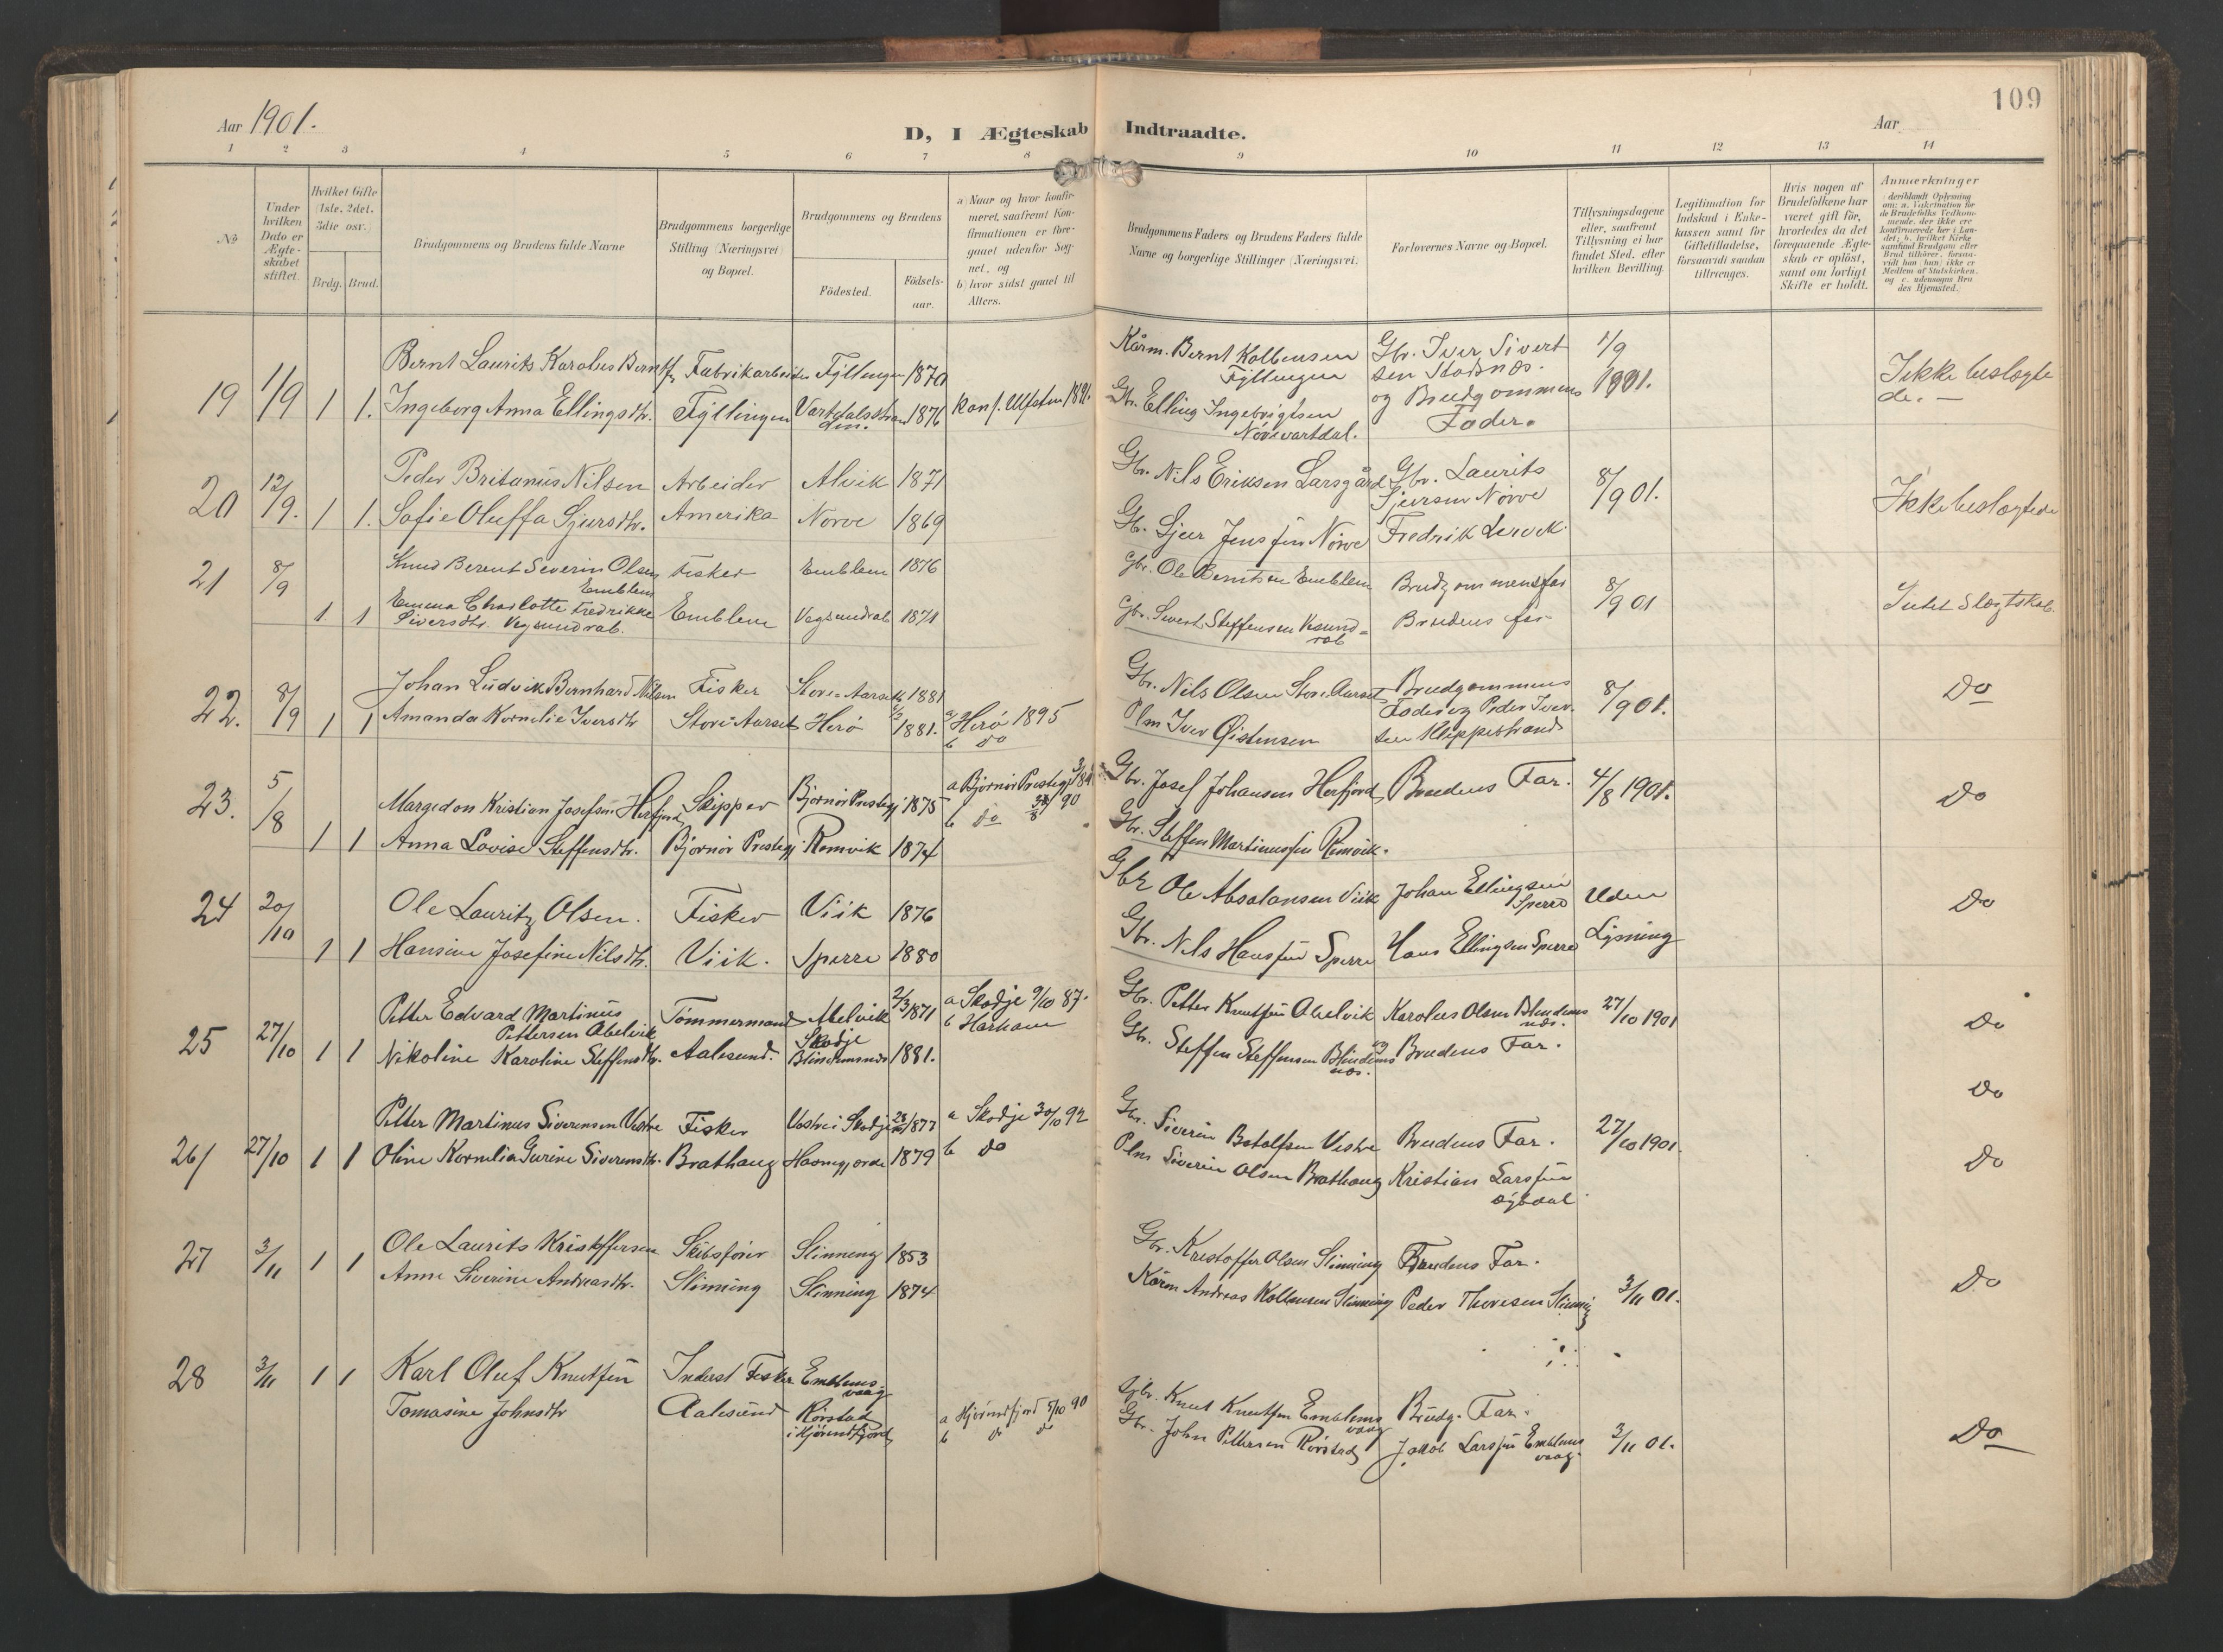 109
Aar 1901.
D, I Ægteskab Indtraadte.
Aar
1 2 3 4 5 6 7 8 9 10 11 12 13 14
№
Under hvilken Dato er Ægteskabet stiftet.
Hvilket Gifte (1ste, 2det, 3die osv.)
Brdg. Brud.
Brudgommens og Brudens fulde Navne
Brudgommens borgerlige Stilling (Næringsvei) og Bopæl.
Brudgommens og Brudens
Födested.
Födsels-aar.
a) Naar og hvor konfirmeret, saafremt Konfirmationen er foregaaet udenfor Sognet, og
b) hvor sidst gaaet til Alters.
Brudgommens Faders og Brudens Faders fulde Navne og borgerlige Stillinger (Næringsvei).
Forlovernes Navne og Bopæl.
Tillysningsdagene eller, saafremt Tillysning ei har fundet Sted, efter hvilken Bevilling.
Legitimation for Indskud i Enkekassen samt for Giftetilladelse, forsaavidt saadan tiltrænges.
Hvis nogen af Brudefolkene har været gift för, hvorledes da det foregaaende Ægteskab er oplöst, samt om lovligt Skifte er holdt.
Anmærkninger
19 1/9 1 1. Bernt Laurits Karolus Berntsen Fabrikarbeider Fyllingen 1870
Ingeborg Anna Ellingsdtr. Fyllingen Vartdalsstranden. 1876 Konf. Ulsten 1891.
Kårm. Bernt Kolbensen Fyllingen
Gbr. Elling Ingebrigtsen Nörevartdal.
Gbr. Iver Sivertsen Stadsnæs. og Brudgommens Fader.
1/9 1901.
Ikke beslægtede. —
20 12/9. 1 1. Peder Britanus Nilsen Arbeider Alvik 1871
Sofie Oluffa Sjursdtr. Amerika Norve 1869
Gbr. Nils Eriksen Larsgård
Gbr. Sjur Jensen Nörve
Gbr. Laurits Sjursen Nörve
Fredrik Lervik
8/9 01.
Ikke beslægtede
21 8/9 1 1 Knud Berent Severin Olsen Emblem Fisker Emblem 1876
Emma Charlotte Fredrikke Siversdtr. Vegsundrab. Emblem Vegsundrab 1871
Gbr. Ole Berntsen Emblem
Gbr. Sivert Steffensen Vesundrab
Brudgommens far
Brudens far
8/9 01
Intet Slægtskab.
22. 8/9 1 1 Johan Ludvik Bernhard Nilsen Fisker Store Aarset 1881
Amanda Kornelie Iversdtr Store Aarset Herö 1881. a Herö 1895
b do
Gbr. Nils Olsen Store Aarset
Plm Iver Øistensen
Brudgommens Fader og Peder Iversen Klippestrand
8/9 01.
Do
23. 5/8 1 1 Margedon Kristian Josefsen Herfjord Skipper Björnör Prestegj 1875 a Björnör Prestegj
b do
Anna Lovise Steffensdtr. Björnör Prestegj Ramvik 1874
Gbr. Josef Johansen Herfjord
Gbr. Steffen Martinussen Ramvik.
Brudens Far.
4/8 1901.
Do
24 20/10 1 1 Ole Lauritz Olsen. Fisker Viik 1876
Hansine Josefine Nilsdtr. Viik. Sperre 1880
Gbr Ole Absalonsen Viik
Gbr. Nils Hansen Sperre
Johan Ellingsen Sperre
Hans Ellingsen Sperre
Uden Lysning
Do
25 27/10 1 1 Petter Edvard Martinus Pettersen Abelvik Tömmermand Abelvik Skodje 2/3 1871 a Skodje 9/10 87.
b Harham
Nikoline Karoline Steffensdtr. Aalesund. Blindemsnæs 1881.
Gbr. Petter Knutsen Abelvik
Gbr. Steffen Steffensen Blindemsnæs.
Karolus Olsen Blindemsnæs.
og Brudens Far.
27/10 1901
Do
Do
26/ 27/10 1 1 Petter Martinus Siverensen Vestre Fisker Vestre i Skodje 1877 a Skodje 30/10 92
Oline Kornelia Gurine Siverensdtr. Brathaug Havnegjerde 1879 b do
Gbr. Siverin Botolfsen Vestre
Plm Siverin Olsen Brathaug
Brudens Far.
Kristian Larsen
27/10 1901.
Do
27 3/11 1 1 Ole Laurits Kristoffersen Skibsförer Slinning 1853
Anne Siverine Andreasdtr. Slinning Slinning 1874
Gbr. Kristoffer Olsen Slinning
Kårm Andreas Kolbensen Slinning
Brudens Far.
Peder Thoresen Slinning
3/11 01.
Do
28 3/11 1 1 Karl Oluf Knutsen Inderst Fisker Emblemsvaag
Tomasine Johnsdtr Aalesund Rörstad i Hjörundfjord a Hjörundfjord 5/10 90
b do do
Gbr. Knut Knutsen Emblemsvaag
Gbr. John Pettersen Rörstad
Brudg. Far.
Jakob Larsen Emblemsvaag.
3/11 01.
Do